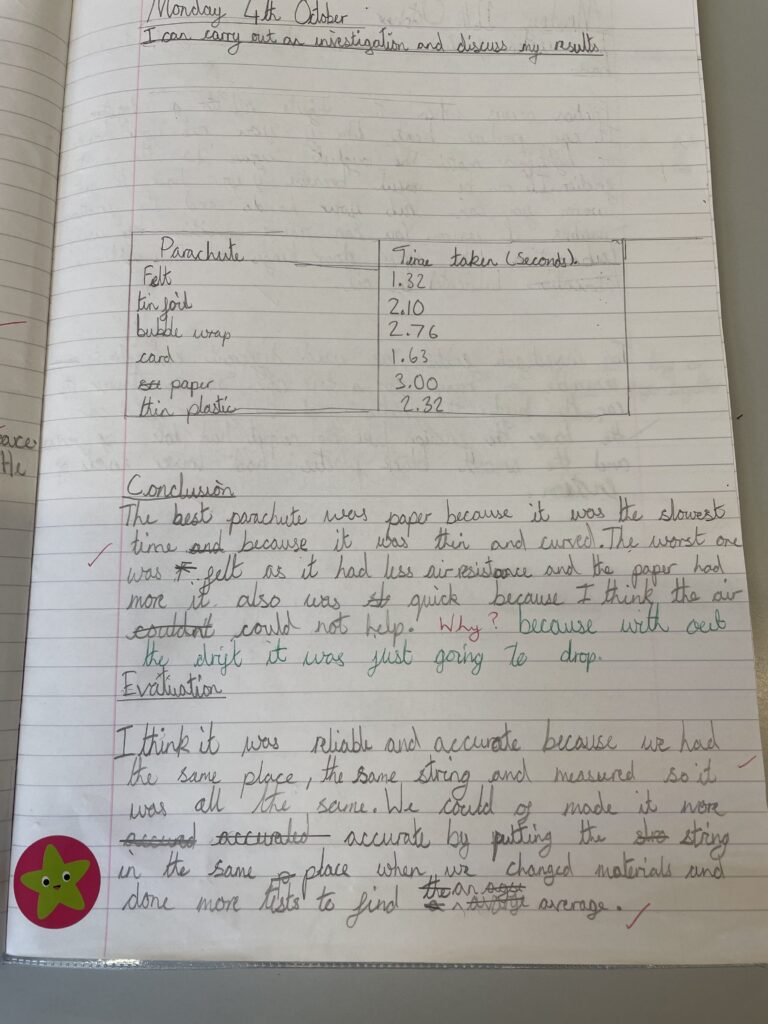 Monday 4th October
I can carry out an investigation and discuss my results
Parachute Time taken (seconds).
Felt 1.32
tin foil 2.10
bubble wrap 2.76
card 1.63
paper 3.00
thin plastic 2.32
Conclusion
The best parachute was paper because it was the slowest
time and because it was thin and curved. The worst one
was felt as it had less air resistance and the paper had
more it also was quick because I think the air
couldn't could not help. Why? because with out
the drift it was just going to drop.
Evaluation
I think it was reliable and accurate because we had
the same place, the same string and measured so it
was all the same. We could of made it more
accurate by putting the string
in the same place when we changed materials and
done more tists to find an average.
ace
He